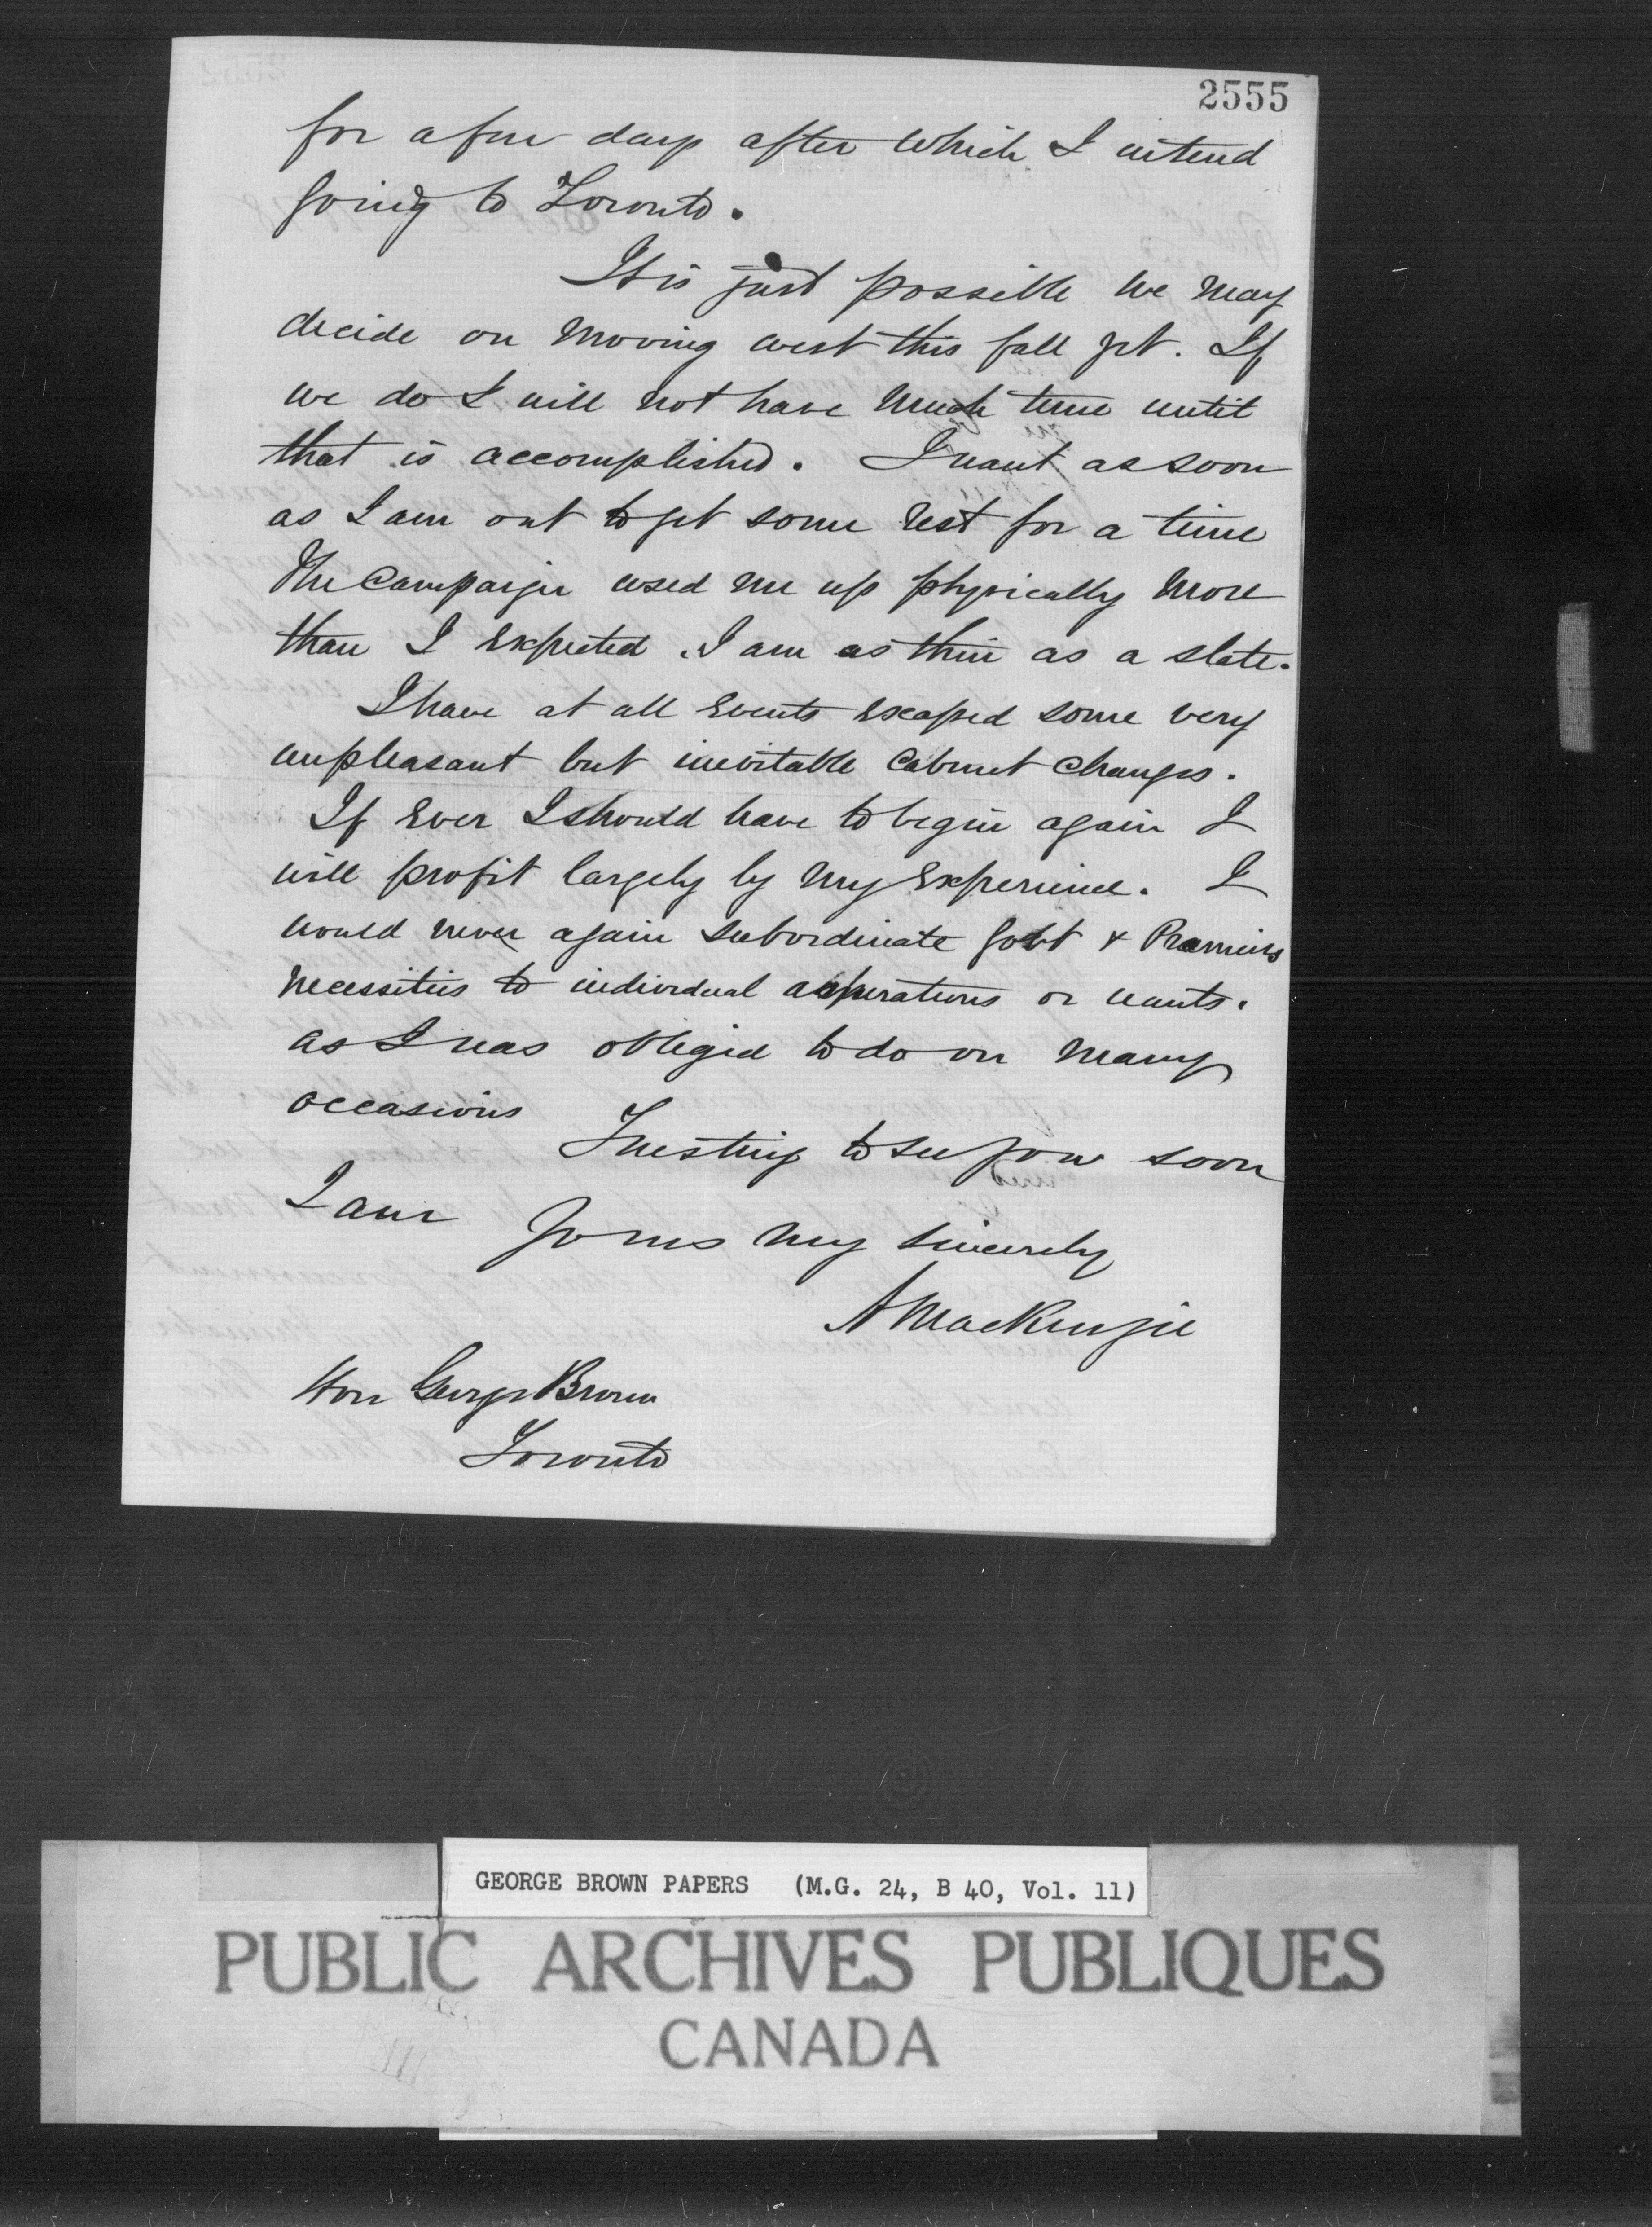 2555
for a few days after which I intend
going to Toronto.
It is just possible we may
decide on moving west this fall yet. If
we do I will not have much time until
that is accomplished. I want as soon
as I am out to get some rest for a time
The Campaign used me up physically more
than I expected. I am as thin as a slate.
I have at all events escaped some very
unpleasant but inevitable Cabinet changes.
If ever I should have to begin again I
will profit largely by my experience. I
would never again subordinate Govt & Premiers
necessities to individual aspirations or wants.
as I was obliged to do on many
occasions
Trusting to see you soon
I am
Yours very sincerely
A Mackenzie
Hon George Brown
Toronto
GEORGE BROWN PAPERS (M.G. 24, B 40, Vol. 11)
PUBLIC ARCHIVES PUBLIQUES
CANADA